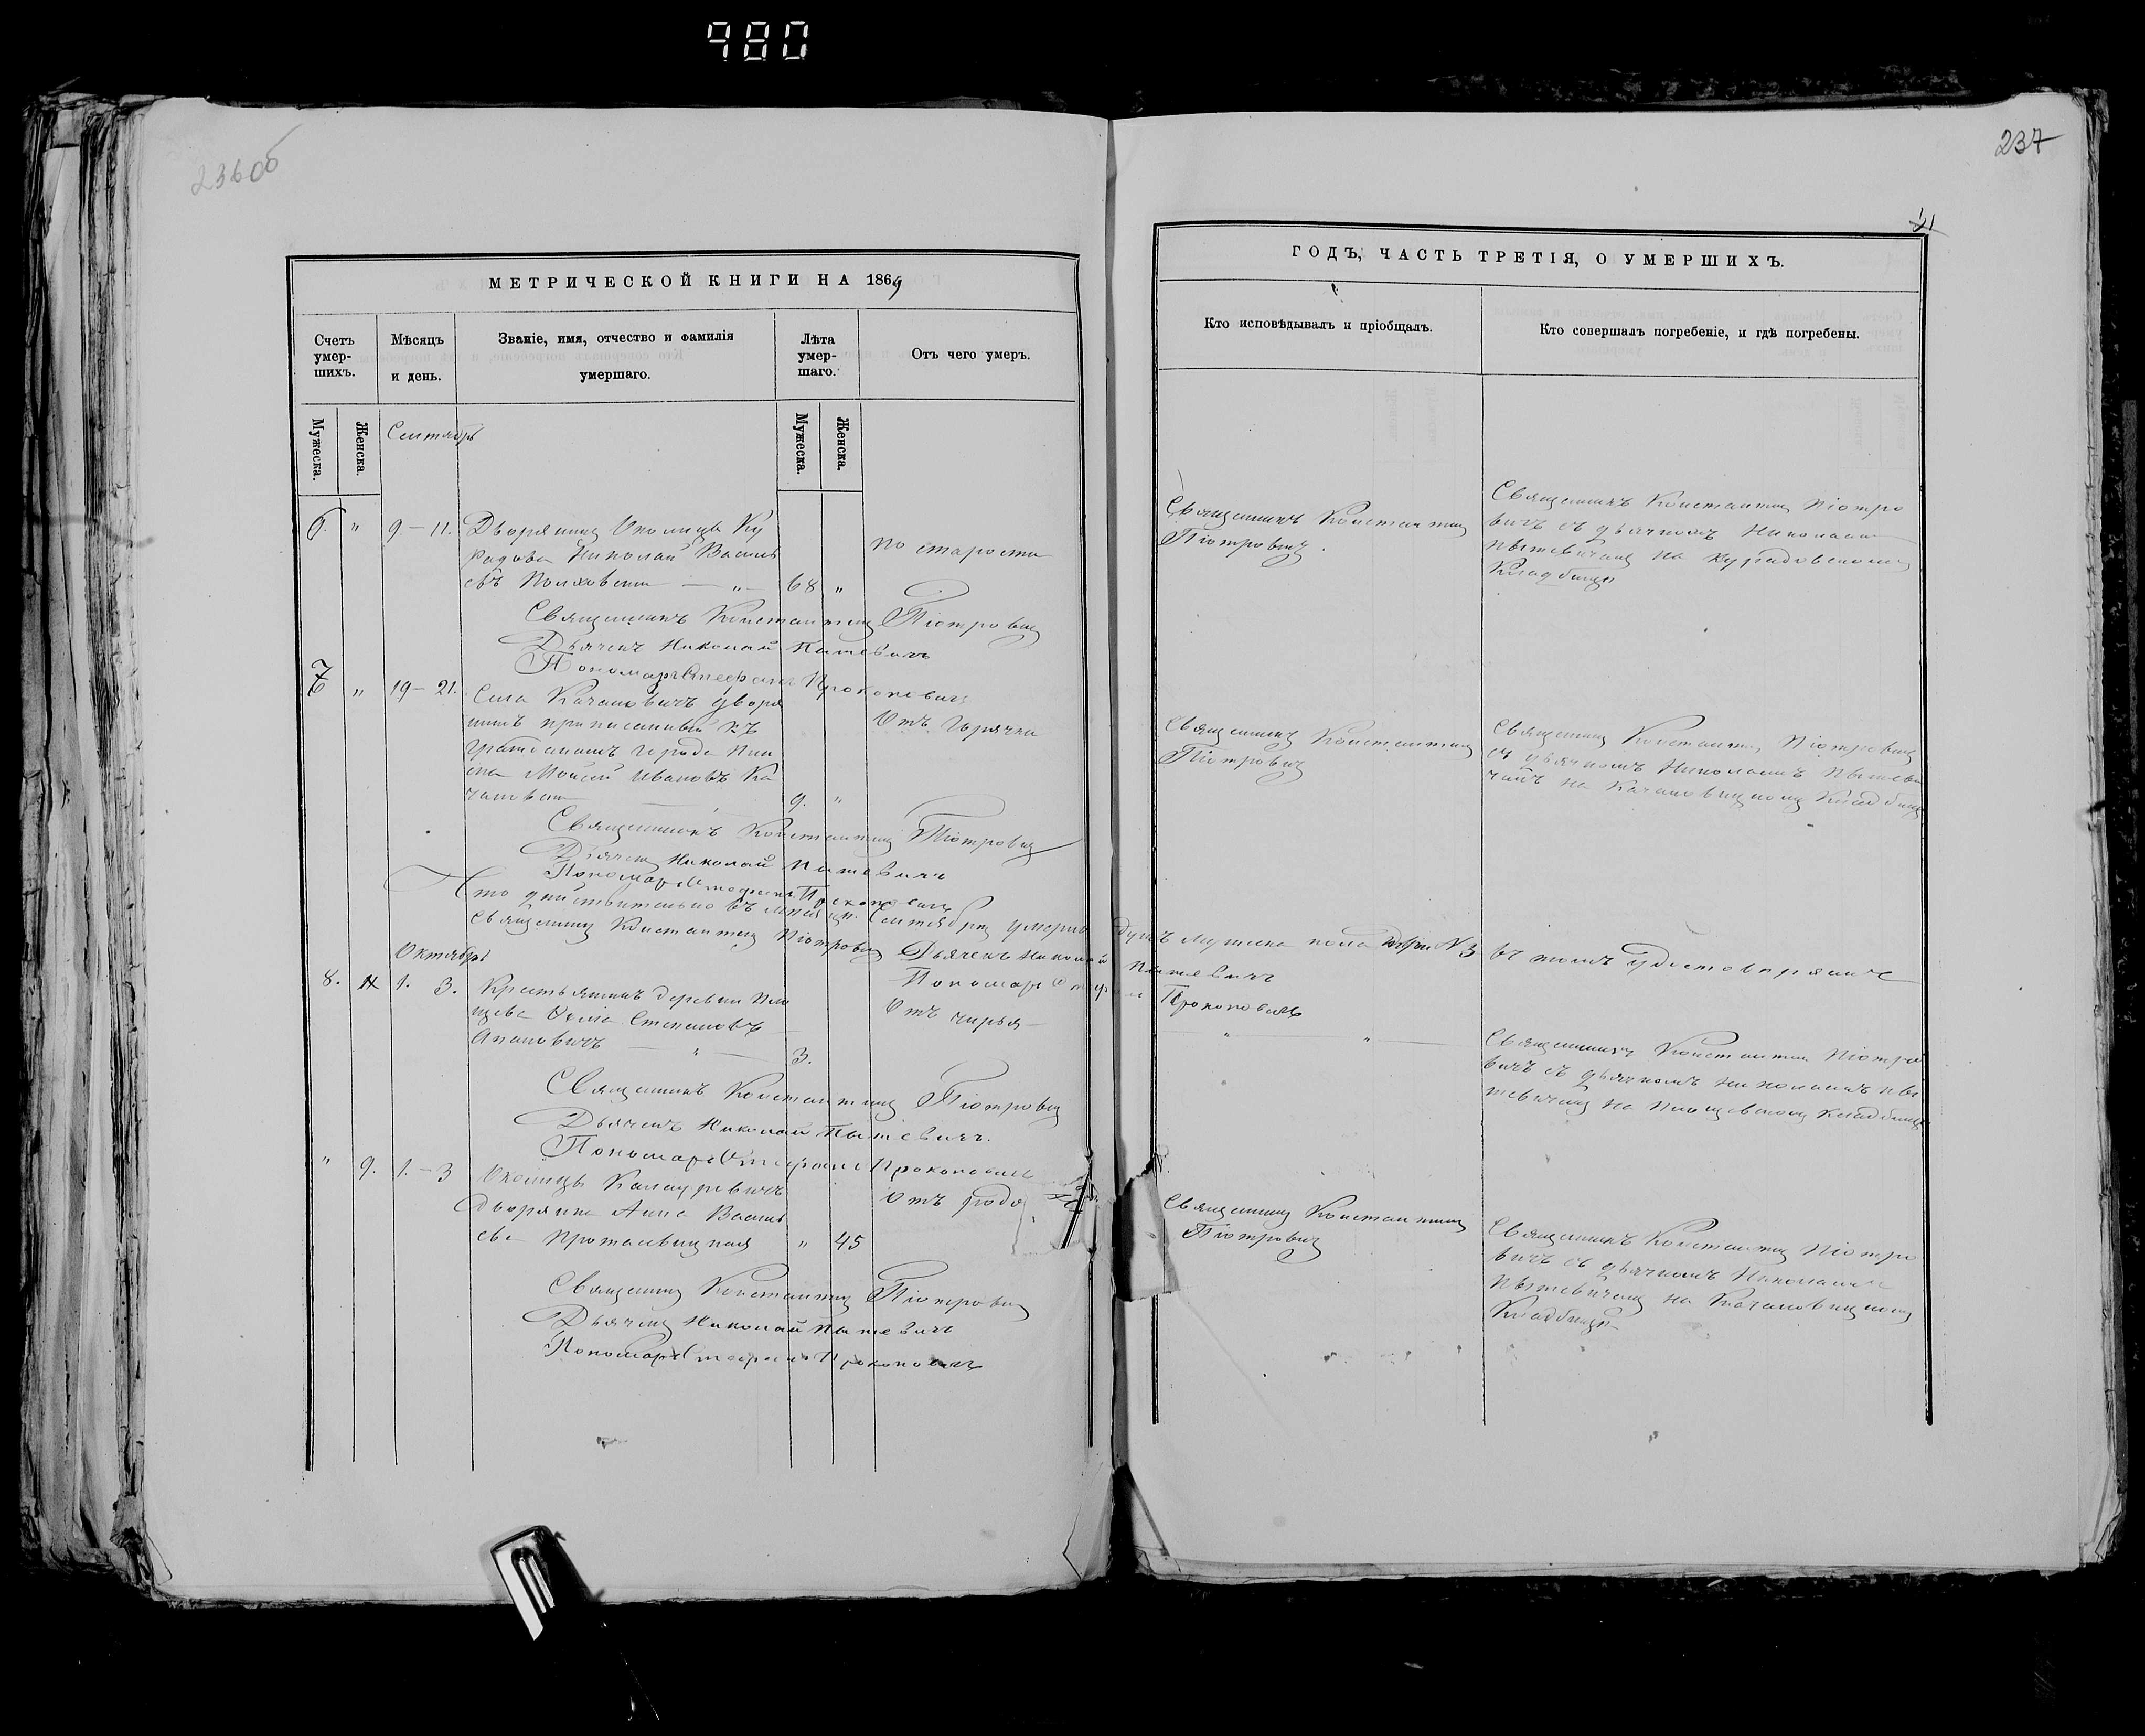 980
236об
237
21
МЕТРИЧЕСКОЙ КНИГИ НА 1869
ГОДЪ, ЧАСТЬ ТРЕТІЯ, О УМЕРШИХЪ.
Счетъ умер-шихъ.
Мѣсяцъ и день.
Званіе, имя, отчество и фамилія умершаго.
Лѣта умер-шаго.
Отъ чего умеръ.
Кто исповѣдывалъ и пріобщалъ.
Кто совершалъ погребеніе, и гдѣ погребены.
Мужеска.
Женска.
Мужеска.
Женска.
Сентябрь
6. " 9–11.
Дворянинъ Околицы Ку
радова Николай Василь
евъ
68 "
по старости
Священникъ Константинъ Піотровичъ
Дьячекъ Николай Пытевичъ
Пономарь Стефанъ Прокоповичъ
Священникъ Константинъ
Піотровичъ.
Священникъ Константинъ Піотро
вичъ съ дьячкомъ Николаемъ
Пытевичемъ на Курадовскомъ
Кладбищѣ
7 " 19–21.
Села Качановичъ дворя
нинъ приписанный къ
гражданамъ города Пин
ска Моисей Ивановъ Ка
9. "
Отъ горячки
Священникъ Константинъ Піотровичъ
Дьячекъ Николай Пытевичъ
Пономарь Стефанъ Прокоповичъ
Священникъ Константинъ
Піотровичъ
Священникъ Константинъ Піотровичъ
съ дьячкомъ Николаемъ Пытеви
чемъ на Качановицкомъ Кладбищѣ
Что дѣйствительно въ мѣсяцѣ Сентябрѣ умерло душъ мужеска пола три № 3 въ томъ удостовѣряемъ
Священникъ Константинъ Піотровичъ Дьячекъ Николай Пытевичъ
Пономарь Стефанъ Прокоповичъ
Октябрь
8. 1. 3.
Крестьянинъ деревни
Степановъ
3.
Отъ чирья
" "
Священникъ Константинъ Піотровичъ
Дьячекъ Николай Пытевичъ.
Пономарь Стефанъ Прокоповичъ
Священникъ Константинъ Піотро
вичъ съ дьячкомъ Николаемъ Пы
тевичемъ на кладбищѣ
" 9. 1.–3
Околицы
дворянка Анна Василь
ева Протасевицкая
" 45
Отъ родо
Священникъ Константинъ Піотровичъ
Дьячекъ Николай Пытевичъ
Пономарь Стефанъ Прокоповичъ
Священникъ Константинъ
Піотровичъ
Священникъ Константинъ Піотро
вичъ съ дьячкомъ Николаемъ
Пытевичемъ на Качановицкомъ
Кладбищѣ